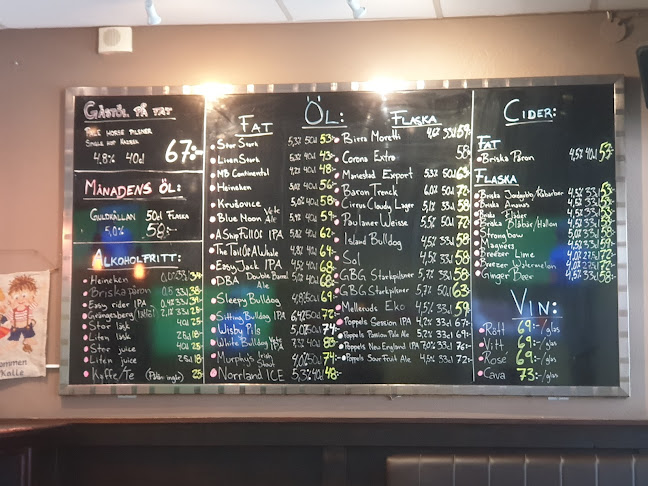 GÄSTÖL PÅ FAT
PALE HORSE PILSNER
SINGLE HOP
4,8% 40cl 67:-
MÅNADENS ÖL:
GULDKÄLLAN 50cl FLASKA
5,0% 58:-
ALKOHOLFRITT:
Heineken 33cl
Briska päron 33cl 38
Easy rider IPA 33cl 39
Grängesberg
Stor läsk 40cl 25
Liten läsk 25cl 18
Stor juice 40cl 25
Liten juice 25cl 18
Kaffe/Te (Påtår ingår) 25:
ÖL:
FAT
Stor Stark 5,3% 50cl 53:-
Liten Stark 5,3% 40cl 43:-
MB Continental 4,2% 40cl 48:-
Heineken 5,0% 40cl 56:-
Krušovice 5,0% 50cl 59:-
Blue Moon Vete Ale 5,4% 40cl 59:-
A Ship Full Of IPA 5,8% 40cl 62:-
The Tail Of A Whale 40cl 64:-
Easy Jack IPA 40cl 68:-
DBA Double Barrel Ale 40cl 68:-
Sleepy Bulldog 50cl 69:-
Sitting Bulldog IPA 40cl 72:-
Wisby Pils 5,0% 50cl 74:-
White Bulldog 50cl 88:-
Murphy's Irish Stout 4,0% 50cl 74:-
Norrland ICE 5,3% 40cl 48:-
FLASKA
Birra Moretti 4,6% 33cl 59:-
Corona Extra 58:-
Mariestad Export 5,3% 50cl 63:-
Baron Trenck 6,0% 50cl 72:-
Cirrus Cloudy Lager 33cl 58:-
Paulaner Weisse 5,5% 50cl 72:-
Island Bulldog 58:-
Sol 33cl 58:-
GBG Starkpilsner 33cl 58:-
GBG Starkpilsner 50cl 63:-
Melleruds Eko 4,5% 33cl 59:-
Poppels Session IPA 4,2% 33cl 67:-
Poppels Passion Pale Ale 5,2% 33cl 69:-
Poppels New England IPA 7,0% 33cl 76:-
Poppels Sour Fruit Ale 4,5% 33cl 72:-
CIDER:
FAT
Briska Päron 4,5% 40cl 57:-
FLASKA
Briska Jordgubb/Rabarber 4,5% 33cl
Briska Ananas 4,5% 33cl
Briska Fläder 4,5% 33cl
Briska Blåbär/Hallon 4,5% 33cl
Strongbow 33cl
Magners 33cl
Breezer Lime 72:-
Breezer Watermelon 72:-
Ginger Deer 33cl 58:-
VIN:
Rött 69:-/glas
Vitt 69:-/glas
Rosé 69:-/glas
Cava 73:-/glas
ommen
Kalle